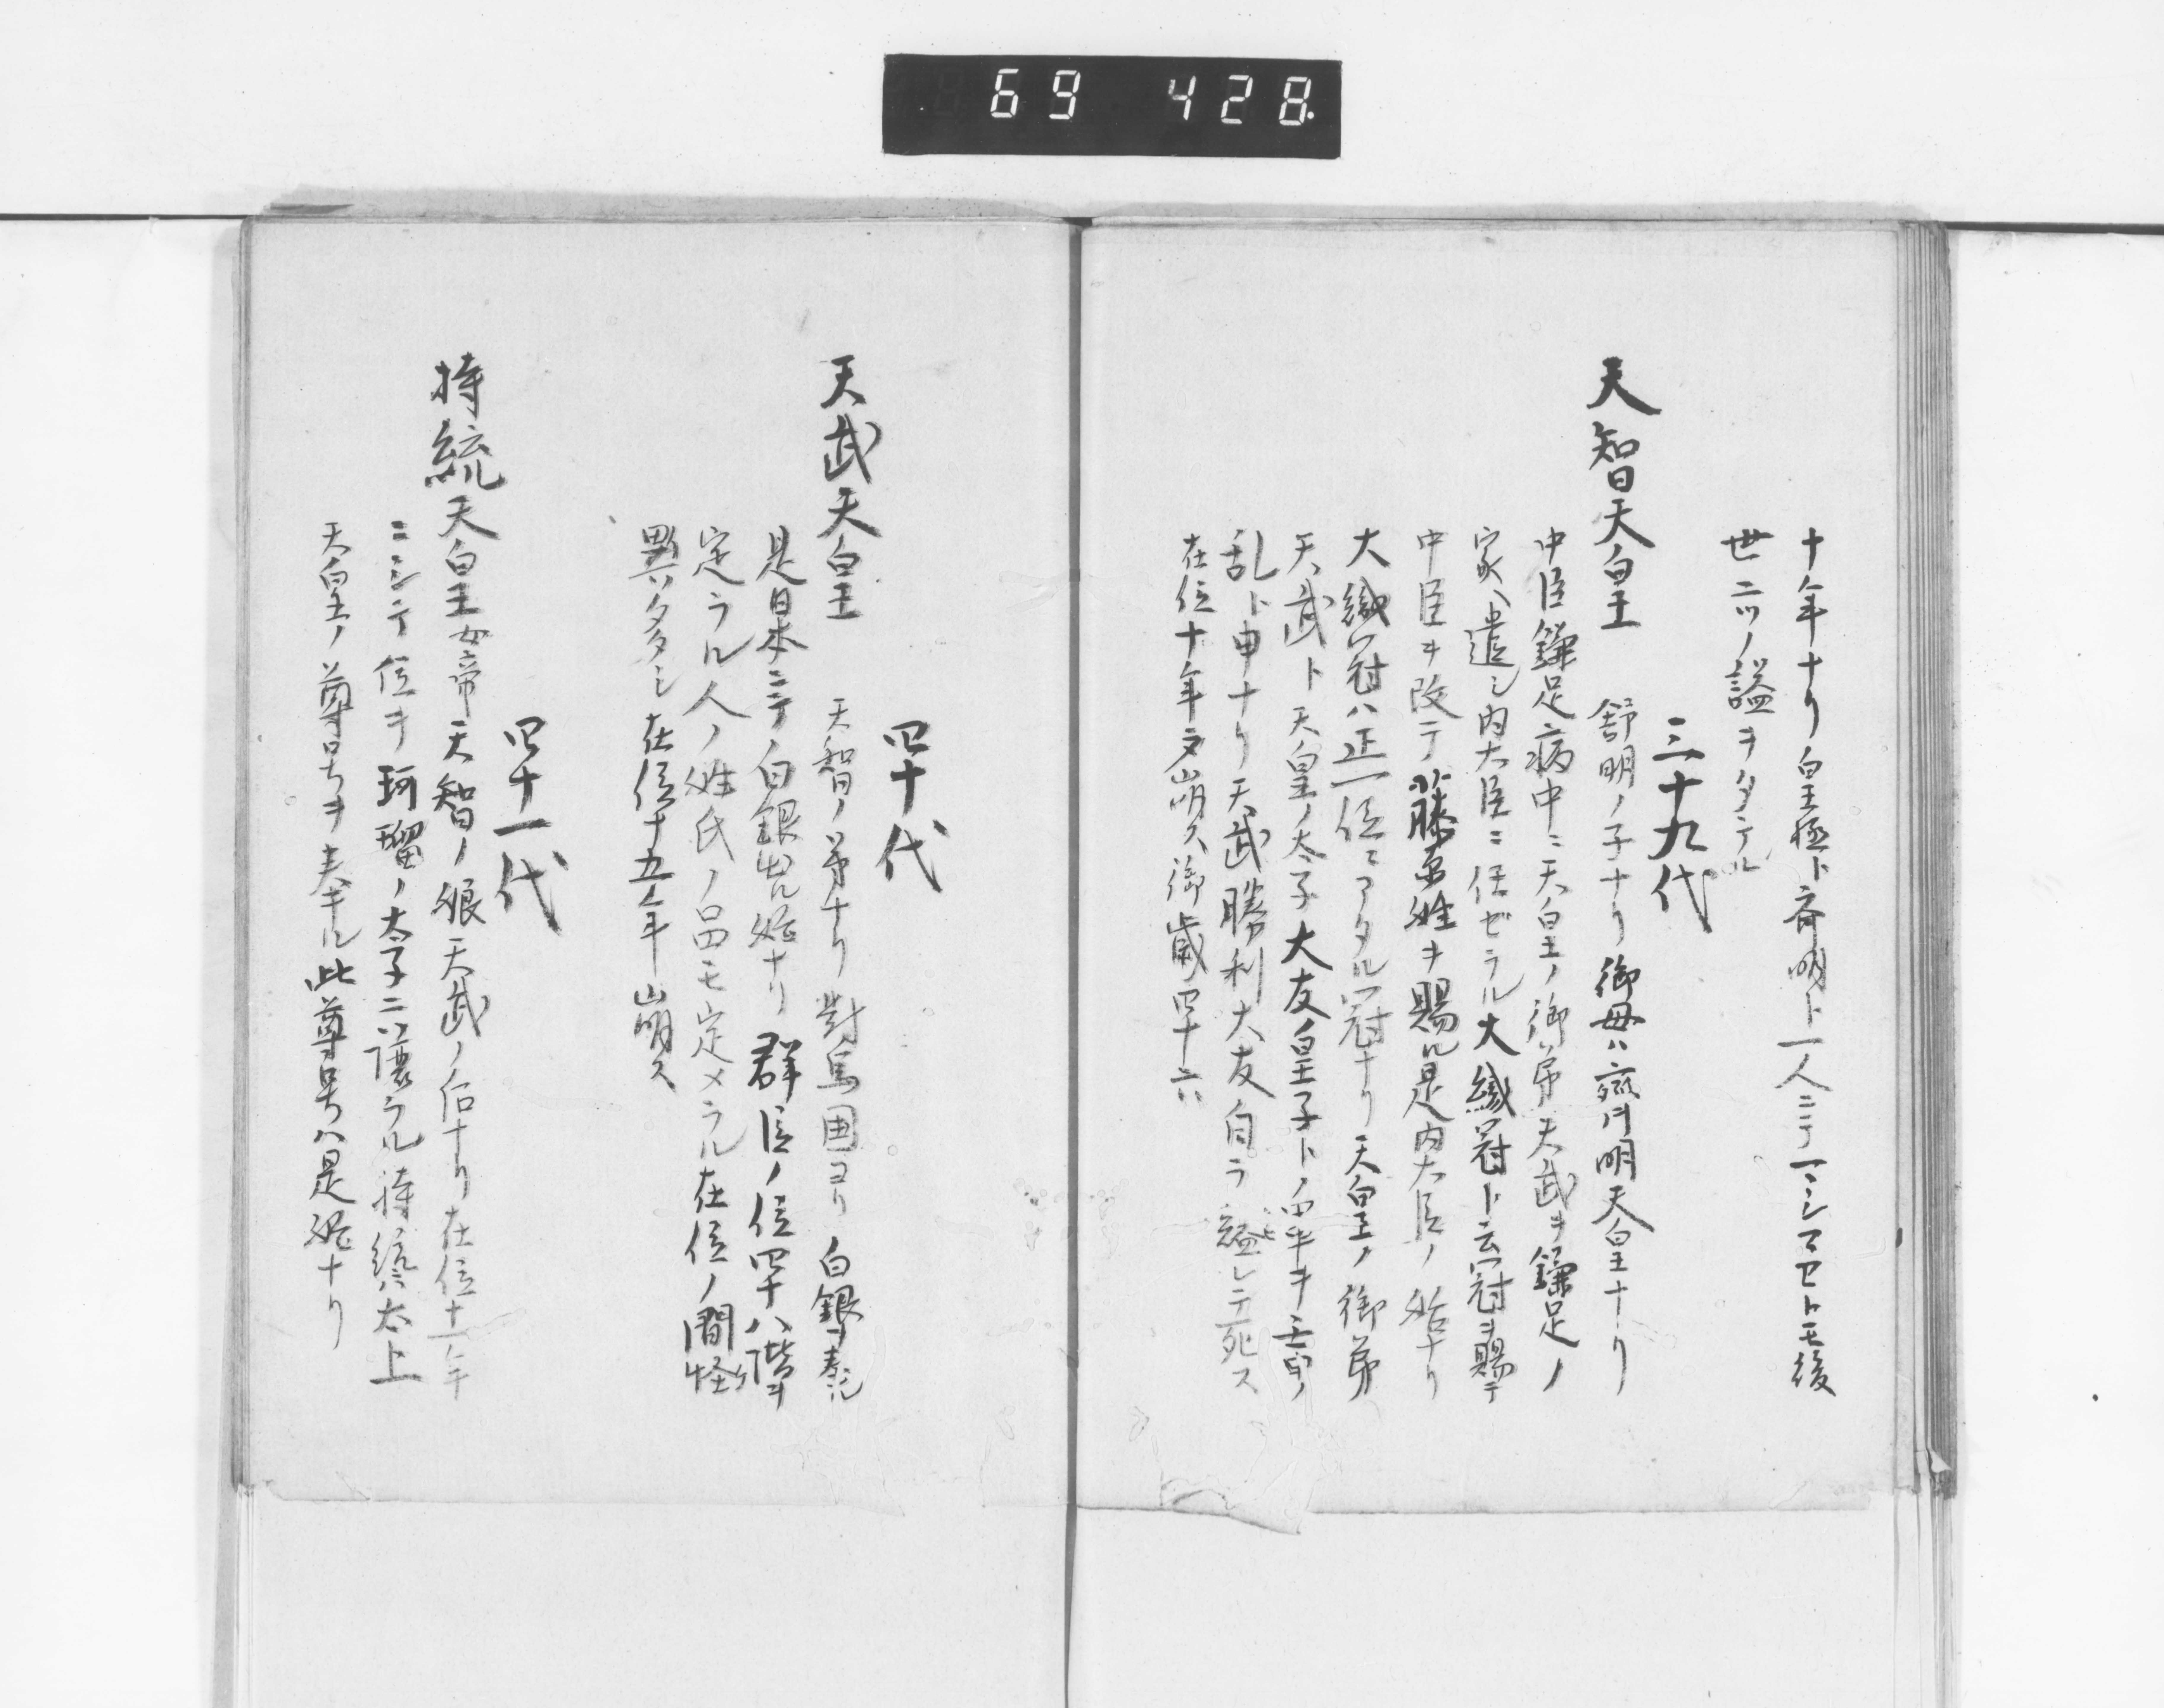 69 428
十年ナリ皇極ト斉明ト一人ニテマシマセトモ後
世二ツノ謚ヲタテル
三十九代
天智天皇 舒明ノ子ナリ御母ハ齊明天皇ナリ
中臣鎌足病中ニ天皇ノ御弟天武ヲ鎌足ノ
家ヘ遣シ内大臣ニ任ゼラル大織冠ト云冠ヲ賜テ
中臣ヲ改テ藤原姓ヲ賜ル是内大臣ノ始ナリ
大織冠ハ正一位ニアタル冠ナリ天皇ノ御弟
天武ト天皇ノ太子大友ノ皇子トノ軍ヲ壬申ノ
乱ト申ナリ天武勝利大友自ラ縊レテ死ス
在位十年ニ崩ス御歳四十六
四十代
天武天皇 天智ノ弟ナリ對馬国ヨリ白銀ヲ奏ル
是日本ニテノ白銀出ル始ナリ群臣ノ位四十八階ヲ
定ラル人ノ姓氏ノ品モ定メラル在位ノ間怪
異ハタタシ在位十五年崩ス
四十一代
持統天皇女帝天智ノ娘天武ノ后ナリ在位十一年
ニシテ位ヲ珂瑠ノ太子ニ讓ラル持統ハ太上
天皇ノ尊号ヲ奉ル此尊号ハ是始ナリ